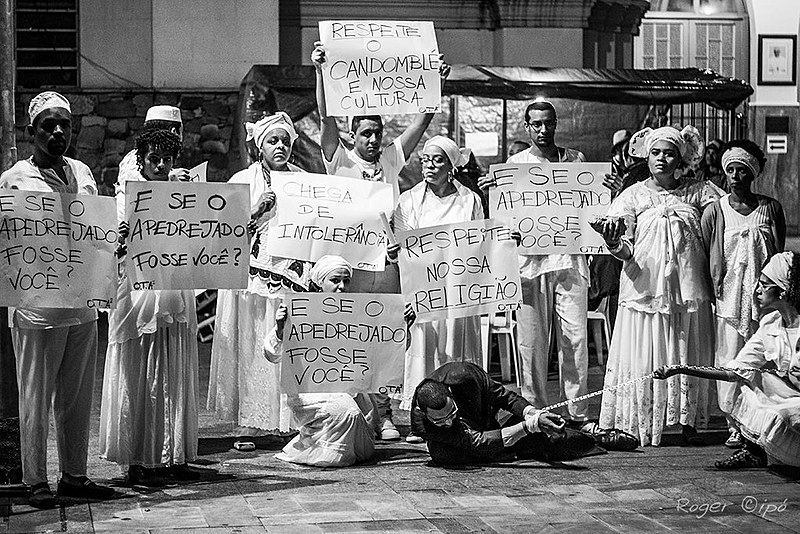 RESPEITE
O
CANDOMBLÉ
E NOSSA
CULTURA
OTÁ
E SE O
APEDREJADO
FOSSE
VOCÊ?
OTÁ
E SE O
APEDREJADO
FOSSE VOCÊ?
OTÁ
CHEGA
DE
INTOLERÂNCIA
E SE O
APEDREJADO
FOSSE
VOCÊ?
OTÁ
RESPEITE
NOSSA
RELIGIÃO
OTÁ
E SE O
APEDREJADO
FOSSE
VOCÊ?
OTÁ
Roger ©ipó